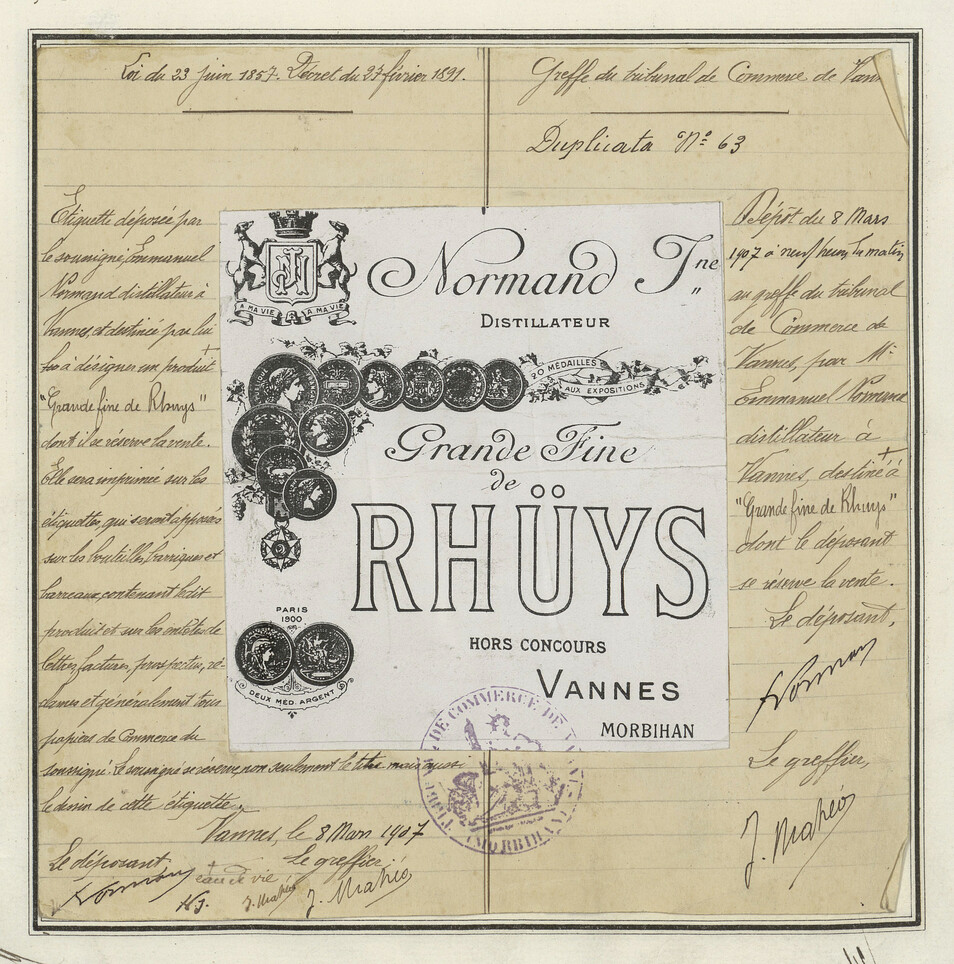 Loi du 23 juin 1857. Décret du 27 février 1891.
Greffe du tribunal de Commerce de Vann
Duplicata Nº 63
Etiquette déposée par
le sousigné, Emmanuel
Normand distillateur à
Vannes, et destinée par lui
à désigner un produit +
"Grande fine de Rhuys"
dont il se réserve la vente.
Elle sera imprimée sur les
étiquettes, qui seront apposées
sur les bouteilles, barriques et
barreaux, contenant ledit
produit et sur les entêtes de
lettres, factures, prospectus, ré-
clames et généralement tous
papiers de Commerce du
soussigné. Le soussigné se réserve, non seulement le titre mais aussi
le dessin de cette étiquette.
Vannes, le 8 Mars 1907
Le déposant
Le greffier
Normand
+ eau de vie
N J.
J. Mahéo
J. Mahéo
A MA VIE A MA VIE
Normand Jne
DISTILLATEUR
20 MÉDAILLES
AUX EXPOSITIONS
Grande Fine
de
RHÜYS
PARIS
1900
DEUX MED. ARGENT
HORS CONCOURS
VANNES
MORBIHAN
DE COMMERCE DE
(MORBIHAN)
Dépôt du 8 Mars
1907 à neuf heures du matin
au greffe du tribunal
de Commerce de
Vannes, par Mr
Emmanuel Normand
distillateur à
Vannes, destiné à +
"Grande fine de Rhuys"
dont le déposant
se réserve la vente.
Le déposant,
Normand
Le greffier,
J. Mahéo